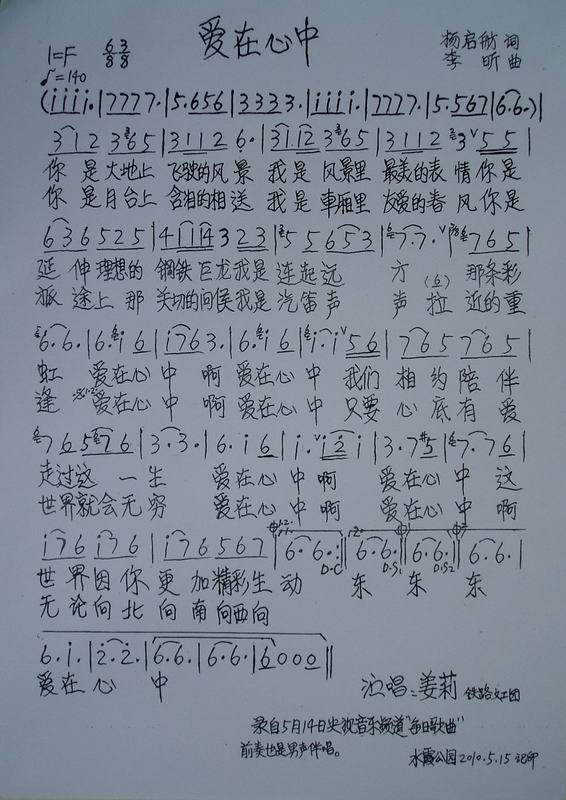 爱在心中
1=F 6/8 3/8
杨启舫 词
♪=140
李 昕 曲
(i i i i. | 7 7 7 7. | 5. 6 5 6 | 3 3 3 3. | i i i i. | 7 7 7 7. | 5. 5 6 7 | 6. 6.) |
3 1 2 3 6 5 | 3 1 1 2 6. | 3 1. 1 2 3 6 5 | 3 1 1 2 3 5 5 |
你 是 大地上 飞驶的风 景 我是 风景里 最美的表 情你是
你 是 月台上 含泪的相 送 我是 车厢里 友爱的春 风你是
6 3 6 5 2 5 | 4 1 1 4 3 2 3 | 5 5 6 5 3 | 7. 7. | 7 6 5 |
延 伸 理想的 钢铁 巨龙我是 连起远 方 (6) 那条彩
旅 途上 那 关切的问侯我是 汽笛声 声 拉 近的重
6. 6. | 6. i 6 | i 7 6 3. | 6. i 6 | i. i 5 6 | 7 6 5 7 6 5 |
虹 爱在心 中 啊 爱在心 中 我们 相 约 陪 伴
逢 爱在心 中 啊 爱在心 中 只要 心 底 有 爱
7 6 5 7 6 | 3. 3. | 6. i 6 | i. i 2 i | 3. 7 #5 | 7. 7 6 |
走过这 一 生 爱在心 中 啊 爱在心 中 这
世界就会无 穷 爱在心 中 啊 爱在心 中 啊
i 7 6 i 7 6 | i 7 6 5 6 7 | 6. 6. | 6. 6. | 6. 6. | 6. 6. |
D.C D.S1 D.S2
世 界 因 你 更 加 精彩 生 动 东 东 东
无 论 向 北 向 南 向西 向
6. i. | 2. 2. | 6. 6. | 6. 6. | 6 0 0 0 ‖
爱 在 心 中
演唱:姜莉 铁路文工团
录自5月14日央视音乐频道"每日歌曲"
前奏也是男声伴唱。
水霞公园2010.5.15 记印